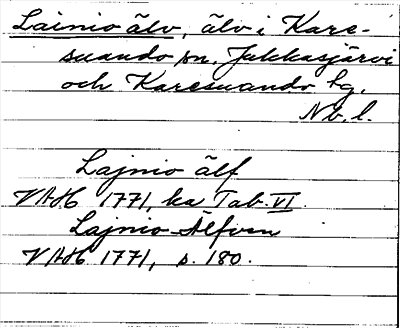 Lainio älv, älv i Kare-
suando sn, Jukkasjärvi
och Karesuando tg,
Nb. l.
Lajnio älf
VAH 1771, ka Tab. VI.
Lajnio Älfven
VAH 1771, s. 180.